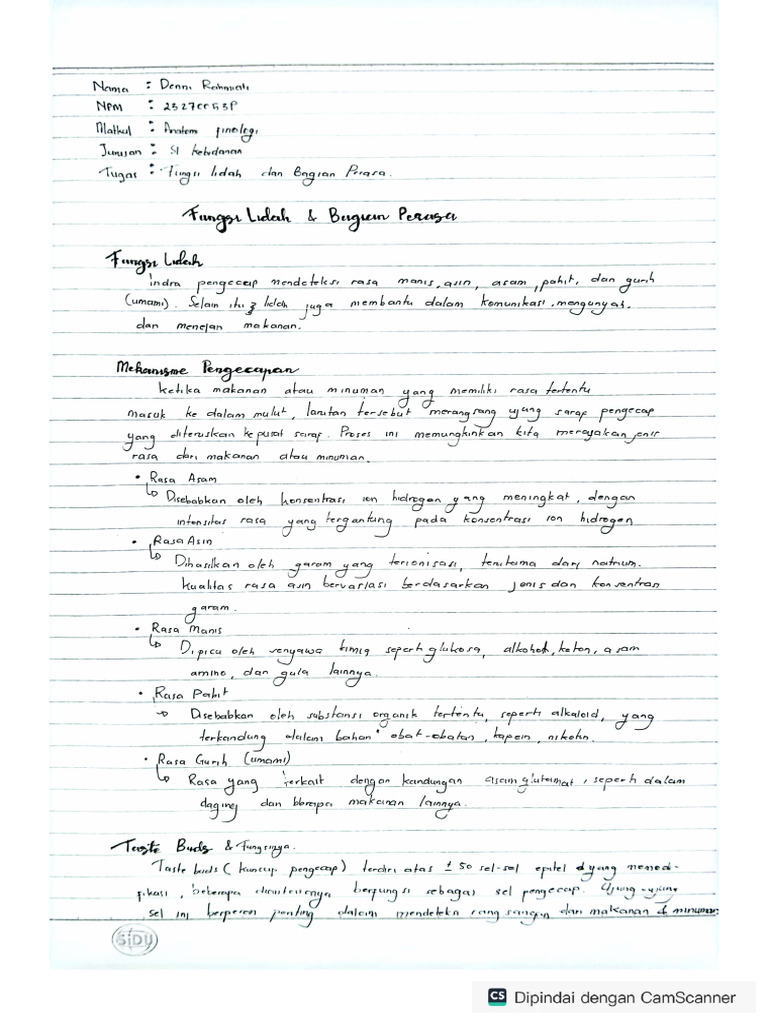 Nama : Denni Rahmiati
NPM :
Matkul : Anatomi fisiologi
Jurusan : S1 kebidanan
Tugas : Fungsi lidah dan Bagian Perasa.
Fungsi Lidah & Bagian Perasa
Fungsi Lidah
Indra pengecap mendeteksi rasa manis, asin, asam, pahit, dan gurih
(umami). Selain itu, lidah juga membantu dalam komunikasi, mengunyah,
dan menelan makanan.
Mekanisme Pengecapan
Ketika makanan atau minuman yang memiliki rasa tertentu
masuk ke dalam mulut, larutan tersebut merangsang ujung saraf pengecap
yang diteruskan ke pusat saraf. Proses ini memungkinkan kita merasakan jenis
rasa dari makanan atau minuman.
• Rasa Asam
↳ Disebabkan oleh konsentrasi ion hidrogen yang meningkat, dengan
intensitas rasa yang tergantung pada konsentrasi ion hidrogen
• Rasa Asin
↳ Dihasilkan oleh garam yang terionisasi, terutama dari natrium.
Kualitas rasa asin bervariasi berdasarkan jenis dan konsentrasi
garam.
• Rasa Manis
↳ Dipicu oleh senyawa kimia seperti glukosa, alkohol, keton, asam
amino, dan gula lainnya.
• Rasa Pahit
→ Disebabkan oleh substansi organik tertentu, seperti alkaloid, yang
terkandung dalam bahan obat-obatan, kafein, nikotin.
• Rasa Gurih (umami)
↳ Rasa yang terkait dengan kandungan asam glutamat, seperti dalam
daging dan bberapa makanan lainnya.
Taste Buds & Fungsinya.
Taste buds (kuncup pengecap) terdiri atas ± 50 sel-sel epitel yang memodi-
fikasi, beberapa diantaranya berfungsi sebagai sel pengecap. Ujung-ujung
sel ini berperan penting dalam mendeteksi rangsangan dari makanan & minuman
SiDU
CS Dipindai dengan CamScanner